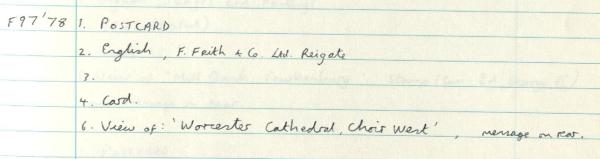 F97'78 1. POSTCARD
2. English, F. Frith & Co. Ltd. Reigate
3.
4. Card.
6. View of: 'Worcester Cathedral, Choir West', message on rear.